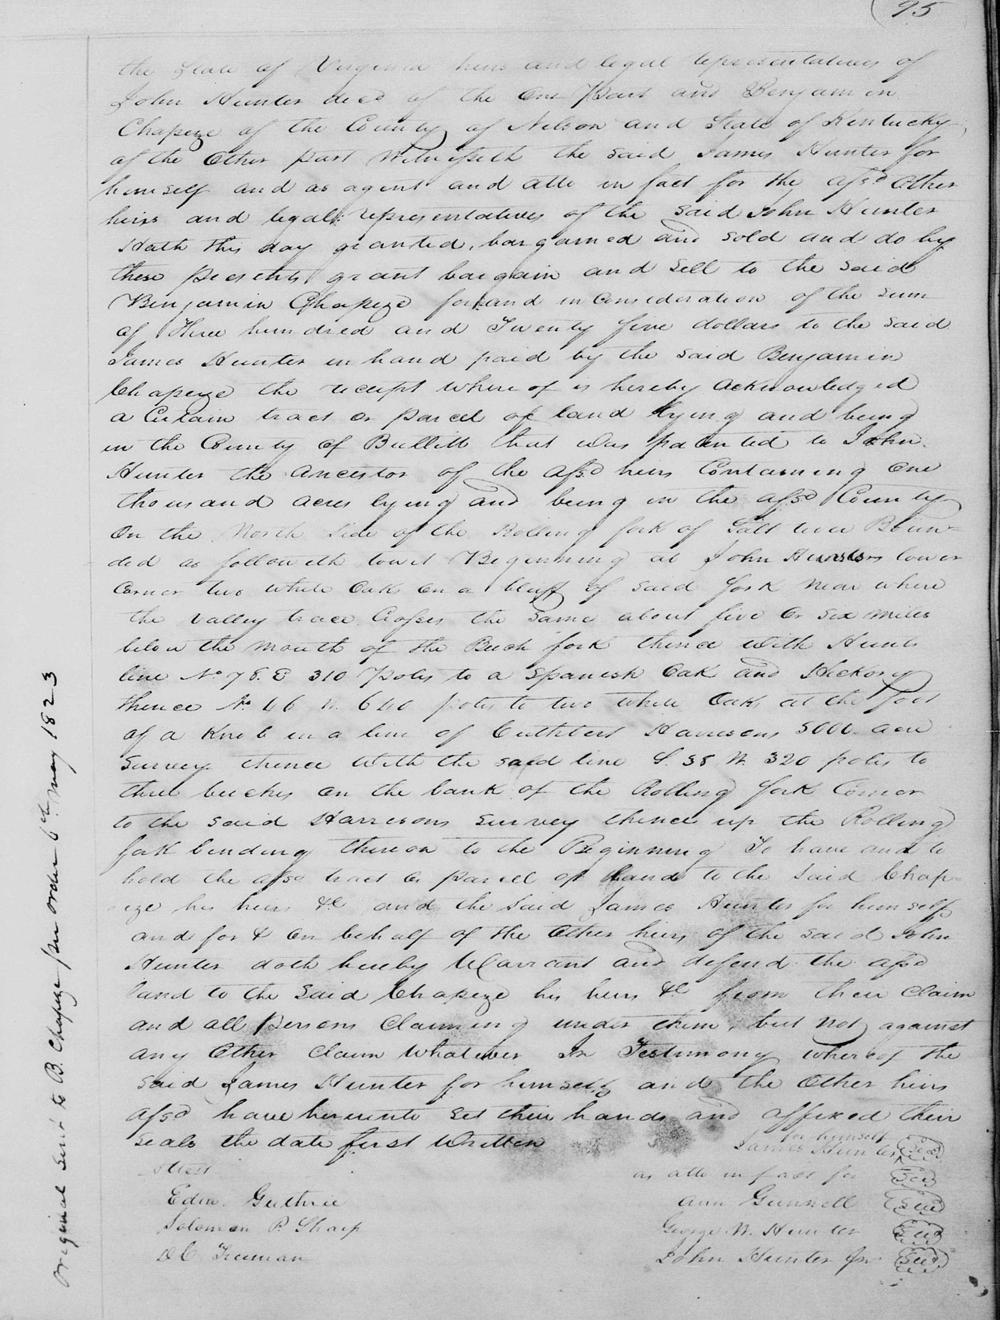 95
the State of Virginia heirs and legal representatives of
John Hunter decd of the One Part and Benjamin
Chapeze of the County of Nelson and State of Kentucky
of the Other part Witnesseth the said James Hunter for
himself and as agent and atto in fact for the afsd Other
heirs and legal representatives of the said John Hunter
Hath this day granted, bargained and sold and do by
these presents grant bargain and sell to the said
Benjamin Chapeze for and in Consideration of the sum
of Three hundred and Twenty five dollars to the said
James Hunter in hand paid by the said Benjamin
Chapeze the receipt Where of is hereby acknowledged
a Certain tract or parcel of land lying and being
in the County of Bullitt that was patented to John
Hunter the ancestor of the afsd heirs Containing One
thousand acres lying and being in the afsd County
On the North Side of the Rolling fork of Salt River Boun-
ded as followeth towit Beginning at John Hunters lower
Corner two white Oaks On a bluff of said fork near where
the valley trace Crosses the same about five Or six miles
below the mouth of the Buch fork thence with Hunts
line No 78 E 310 Poles to a Spanish Oak and Hickory
thence No 46 W 640 poles to two white Oaks at the foot
of a Knob in a line of Cuthbert Harrisons 5000 acre
survey thence With the said line S 38 W 320 poles to
three beeches on the bank of the Rolling fork Corner
to the said Harrisons survey thence up the Rolling
fork binding thereon to the Beginning To have and to
hold the afsd tract Or parcell of land to the Said Chap-
eze his heirs &c and the Said James Hunter for himself
and for & On behalf of the Other heirs of the said John
Hunter doth hereby Warrant and defend the afsd
land to the said Chapeze his heirs &c from their Claim
and all persons Claiming under them, but not against
any Other Claim Whatever In Testimony whereof the
said James Hunter for himself and the Other heirs
afsd have hereunto set their hands and affixed their
seals the date first Written
for himself
James Hunter Seal
Attest
as atto in fact for Seal
Edw. Guthrie
Ann Gunnell Seal
Solomon P Sharp
George W. Hunter Seal
D C Freeman
John Hunter Jr Seal
Original Sent to B. Chapeze per order 6th may 1823